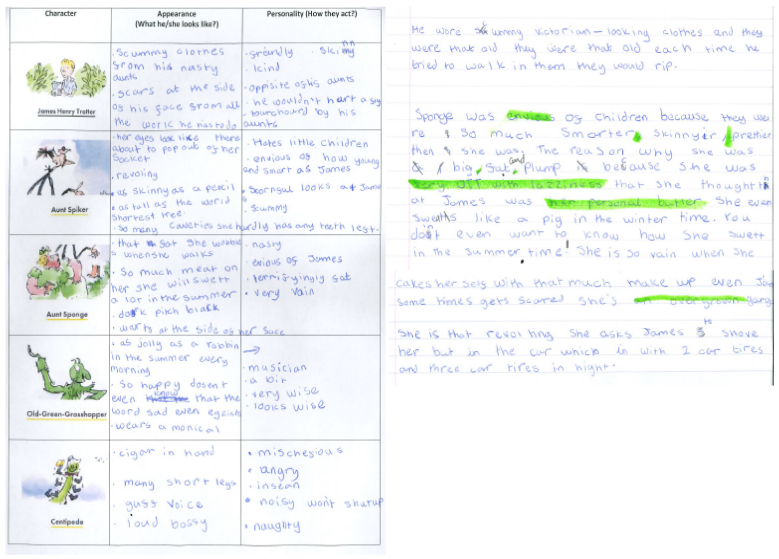 Character
Appearance
(What he/she looks like?)
Personality (How they act?)
James Henry Trotter
. Scummy clothes
from his nasty
aunts
. scars at the side
of his face from all
the work he has to do
. greandly . Skinny
. kind
. opposite of his aunts
. he wouldn't hurt a
aunts
Aunt Spiker
. her eyes look like there
about to pop out of her
socket
. revoling
as skinny as a pencil
. as tall as the world
shortest tree.
. so many caveties she hardly has any teeth left.
. Hates little children
. envious of how young
and smart as James
. Scornful looks at James
. Scummy
Aunt Sponge
. that fat she wobble
s when she walks
. So much meat on
her she will swett
a lot in the summer
. dark pitch black
. warts at the side of her face
. nasty
. envious of James
. terrifyingly fat
. very vain
Old-Green-Grasshopper
. as jolly as a robbin
in the summer every
morning
. so happy dosent
even know that the
word sad even egzists
. wears a monical
. musician
. a bit
. very wise
. looks wise
Centipede
. cigar in hand
. many short legs
. guss voice
. loud bossy
. mischevious
. angry
. insean
. noisy wont shutup
. naughty
He wore scummy victorian-looking clothes and they
were that old they were that old each time he
tried to walk in them they would rip.
Sponge was envious of children because they we
re so much smarter, skinnyir, prettier
then she was. The reason why she was
big, fat, and plump because she was
very off with lazziness that she thought
at James was her personal butler She even
sweaths like a pig in the winter time. You
don't even want to know how she swett
in the summer time! She is so vain when she
cakes her self with that much make up even Jam
some times gets scared she's an overgrown garg
She is that revolting she asks James to shave
her but in the car which in with 2 car tires
and three car tires in hight.